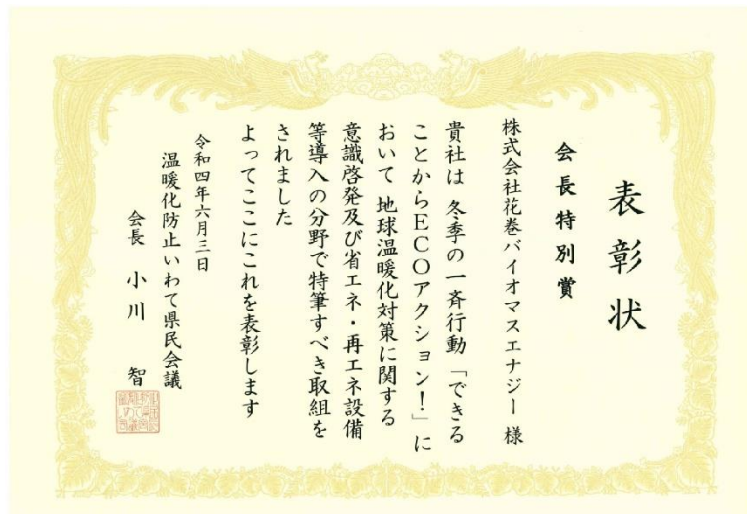 表彰状
会長特別賞
株式会社花巻バイオマスエナジー 様
貴社は 冬季の一斉行動「できる
ことからECOアクション!」に
おいて 地球温暖化対策に関する
意識啓発及び省エネ・再エネ設備
等導入の分野で特筆すべき取組を
されました
よってここにこれを表彰します
令和四年六月三日
温暖化防止いわて県民会議
会長 小川 智